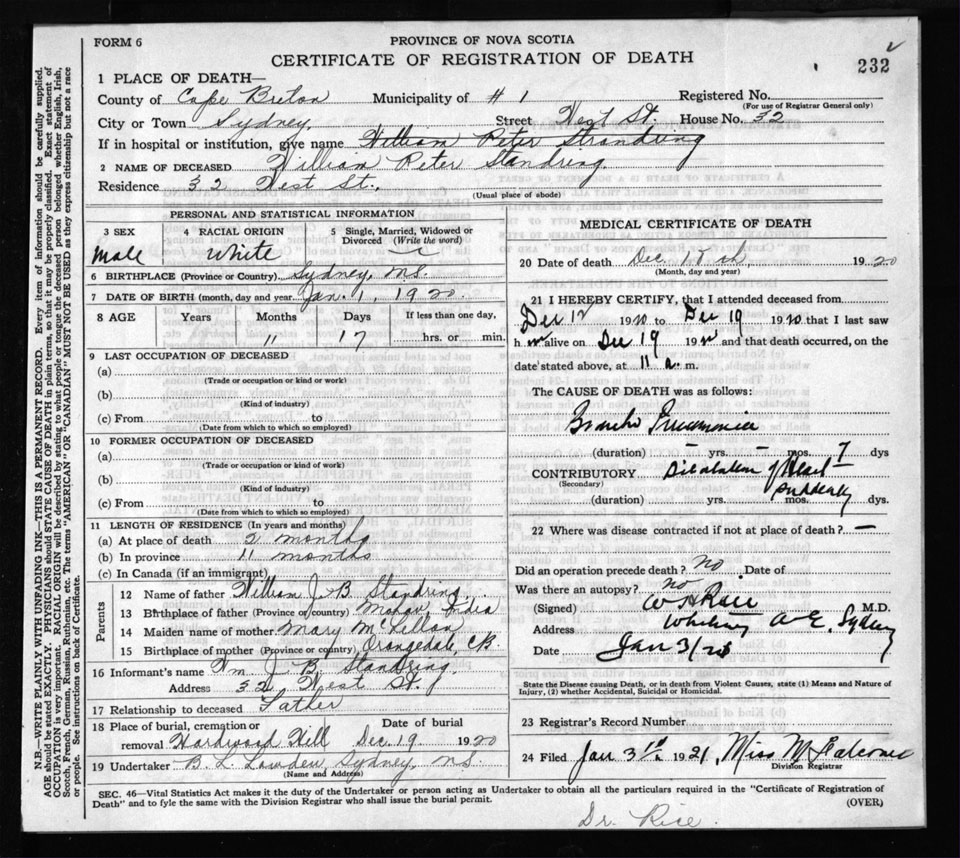 FORM 6
PROVINCE OF NOVA SCOTIA
CERTIFICATE OF REGISTRATION OF DEATH
232
1 PLACE OF DEATH—
County of Cape Breton Municipality of # 1 Registered No.
(For use of Registrar General only)
City or Town Sydney Street West St. House No. 32
If in hospital or institution, give name William Peter Strandring
2 NAME OF DECEASED William Peter Standring
Residence 32 West St.,
(Usual place of abode)
PERSONAL AND STATISTICAL INFORMATION
3 SEX
Male
4 RACIAL ORIGIN
White
5 Single, Married, Widowed or Divorced (Write the word)
6 BIRTHPLACE (Province or Country) Sydney, N.S.
7 DATE OF BIRTH (month, day and year Jan. 1, 1920.
8 AGE Years Months Days If less than one day,
11 17 hrs. or min.
9 LAST OCCUPATION OF DECEASED
(a)
(Trade or occupation or kind or work)
(b)
(Kind of industry)
(c) From to
(Date from which to which so employed)
10 FORMER OCCUPATION OF DECEASED
(a)
(Trade or occupation or kind of work)
(b)
(Kind of Industry)
(c) From to
(Date from which to which so employed)
11 LENGTH OF RESIDENCE (In years and months)
(a) At place of death 2 months
(b) In province 11 months
(c) In Canada (if an immigrant)
Parents
12 Name of father William J. B. Standring
13 Birthplace of father (Province or country) India
14 Maiden name of mother Mary McLellan
15 Birthplace of mother (Province or country) Orangedale, CB
16 Informant's name Wm. J. B. Standring
Address 32 West St.
17 Relationship to deceased Father
18 Place of burial, cremation or Date of burial
removal Hardwood Hill Dec. 19 1920
19 Undertaker B. L. Lowden, Sydney, N.S.
(Name and Address)
MEDICAL CERTIFICATE OF DEATH
20 Date of death Dec 18th 1920
(Month, day and year)
21 I HEREBY CERTIFY, that I attended deceased from
Dec 12 1920 to Dec 19 1920 that I last saw
h alive on Dec 19 192 and that death occurred, on the
date stated above, at 11 a. m.
The CAUSE OF DEATH was as follows:
Broncho Pneumonia
(duration) — yrs. — mos. 7 dys
CONTRIBUTORY Dilatation of Heart
(Secondary) suddenly
(duration) yrs. mos. dys.
22 Where was disease contracted if not at place of death? —
Did an operation precede death? no Date of
Was there an autopsy? no
(Signed) W H Rice M.D.
Address Whitney Ave, Sydney
Date Jan 3/
State the Disease causing Death, or in death from Violent Causes, state (1) Means and Nature of
Injury, (2) whether Accidental, Suicidal or Homicidal.
23 Registrar's Record Number
24 Filed Jan 3rd. 1921, Miss M
Division Registrar
SEC. 46—Vital Statistics Act makes it the duty of the Undertaker or person acting as Undertaker to obtain all the particulars required in the "Certificate of Registration of
Death" and to fyle the same with the Division Registrar who shall issue the burial permit. (OVER)
Dr. Rice.
N.B.—WRITE PLAINLY WITH UNFADING INK—THIS IS A PERMANENT RECORD. Every item of information should be carefully supplied.
AGE should be stated EXACTLY. PHYSICIANS should STATE CAUSE OF DEATH in plain terms, so that it may be properly classified. Exact statement of
OCCUPATION is very important. RACIAL ORIGIN will be described by stating to what people or tongue the deceased person belonged, whether English, Irish,
Scotch, French, German, Russian, Ruthenian, etc. The terms "AMERICAN" OR "CANADIAN" MUST NOT BE USED as they express citizenship but not a race
or people. See instructions on back of Certificate.